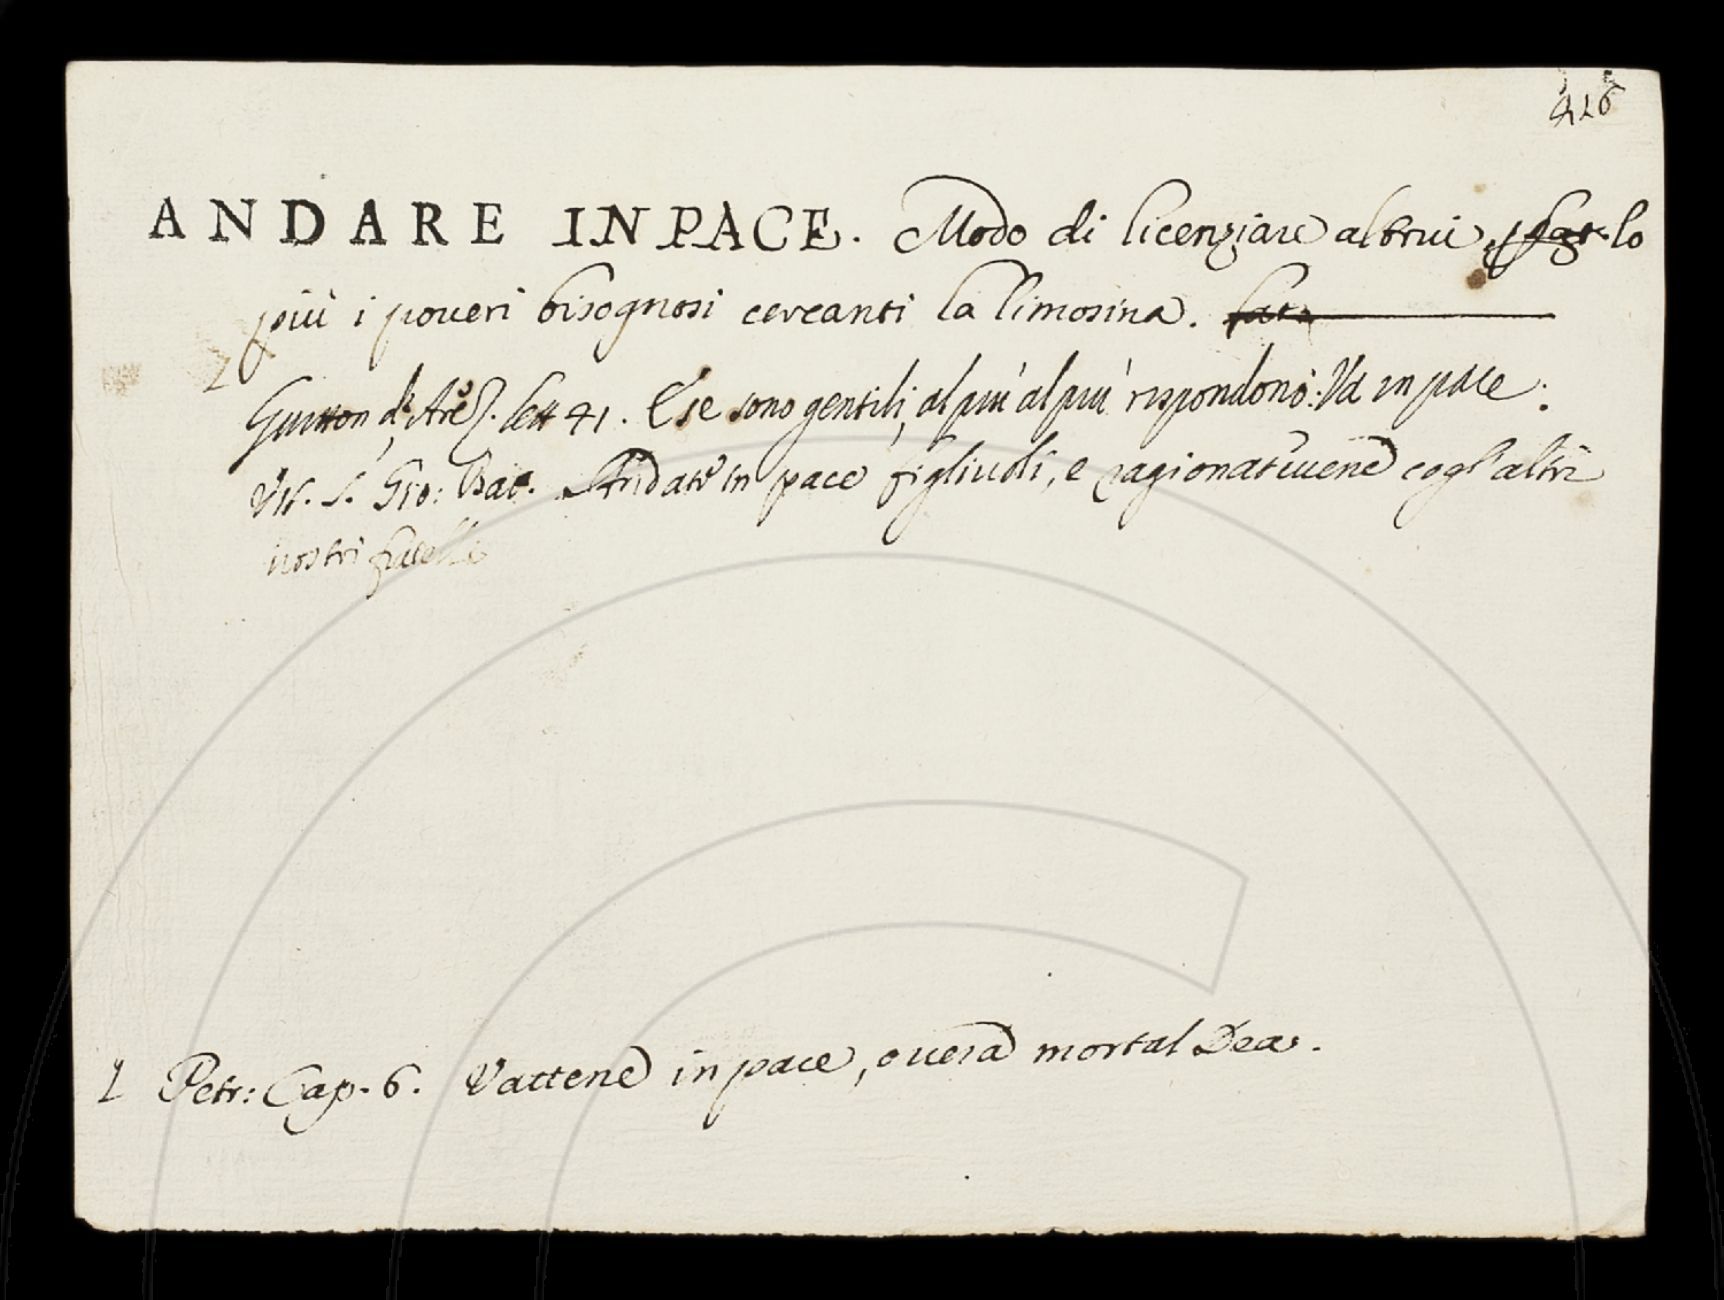 426
ANDARE IN PACE. Modo di licenziare altrui lo
più i poueri bisognosi cercanti la limosina.
2
Guitton d'Arez. lett 41. E se sono gentili, al più al più rispondono: Va in pace.
Vit. S. Gio: Bat. Andate in pace figliuoli, e ragionatiuene cogl'altri
nostri fratelli
1 Petr: Cap. 6. Vattene in pace, o uera mortal Dea.